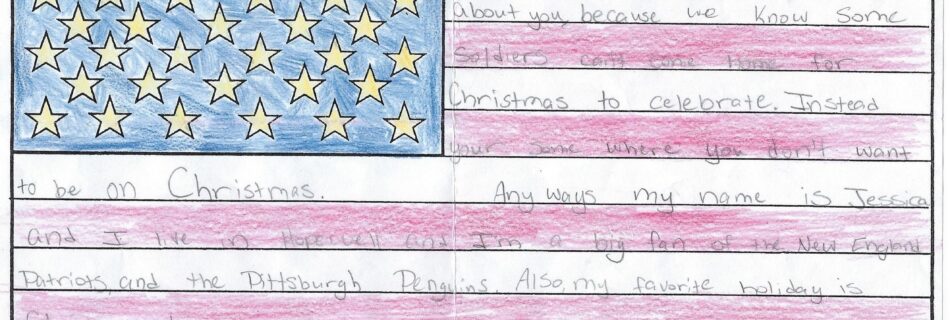 About you, because we know some
Soldiers can't come home for
Christmas to celebrate. Instead
your some where you don't want
to be on Christmas. Any ways my name is Jessica
and I live in Hopewell and I'm a big fan of the New England
Patriots, and the Pittsburgh Penguins. Also, my favorite holiday is